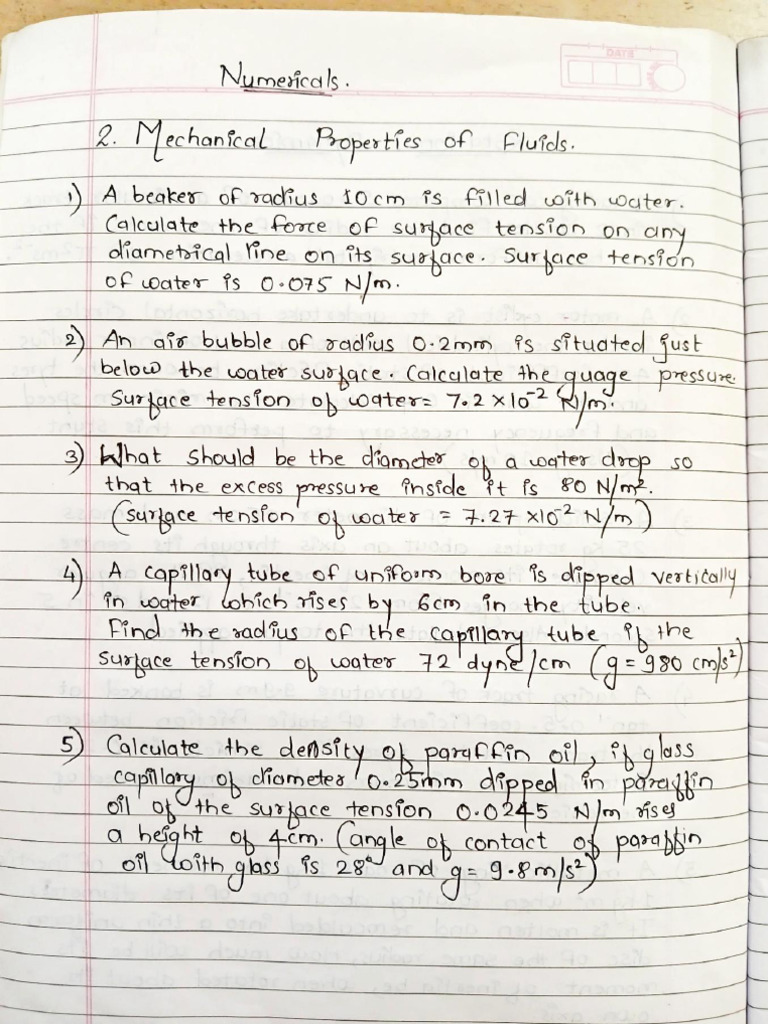 DATE
Numericals.
2. Mechanical Properties of Fluids.
1) A beaker of radius 10cm is filled with water.
Calculate the force of surface tension on any
diametrical line on its surface. Surface tension
of water is 0.075 N/m.
2) An air bubble of radius 0.2mm is situated just
below the water surface. Calculate the guage pressure.
Surface tension of water= 7.2 ×10⁻² N/m.
3) What should be the diameter of a water drop so
that the excess pressure inside it is 80 N/m².
(surface tension of water = 7.27 ×10⁻² N/m)
4) A capillary tube of uniform bore is dipped vertically
in water which rises by 6cm in the tube.
Find the radius of the capillary tube if the
surface tension of water 72 dyne/cm (g=980 cm/s²)
5) Calculate the density of paraffin oil, if glass
capillary of diameter 0.25mm dipped in paraffin
oil of the surface tension 0.0245 N/m rises
a height of 4cm. (angle of contact of paraffin
oil with glass is 28° and g= 9.8m/s²)